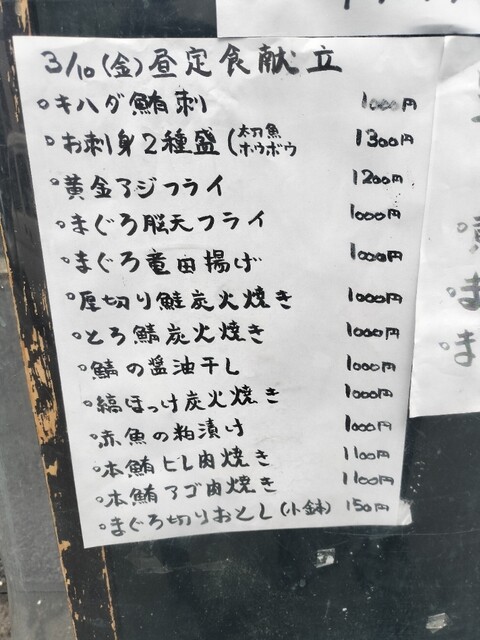 3/10(金)昼定食献立
・キハダ鮪刺 1000円
・お刺身2種盛(太刀魚 ホウボウ 1300円
・黄金アジフライ 1200円
・まぐろ脳天フライ 1000円
・まぐろ竜田揚げ 1000円
・厚切り鮭炭火焼き 1000円
・とろ鯖炭火焼き 1000円
・鯖の醤油干し 1000円
・縞ほっけ炭火焼き 1000円
・赤魚の粕漬け 1000円
・本鮪ヒレ肉焼き 1100円
・本鮪アゴ肉焼き 1100円
・まぐろ切りおとし(小鉢) 150円
・ま
・ま